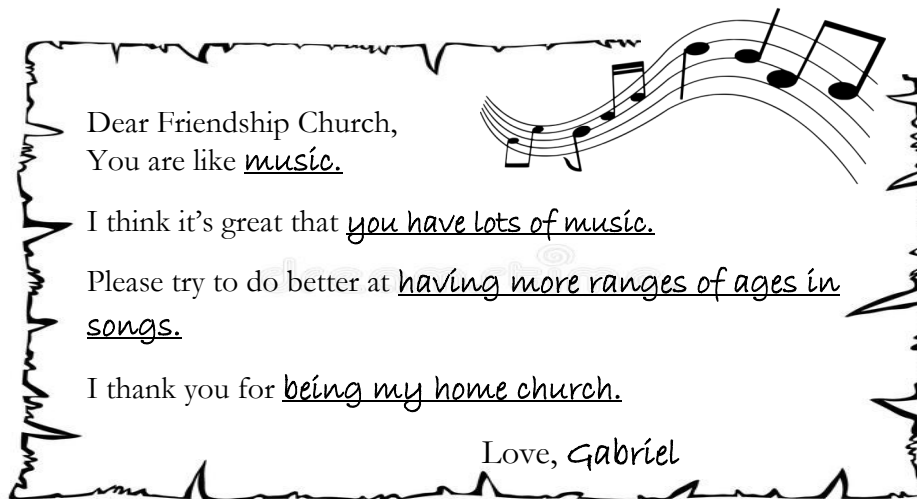 Dear Friendship Church,
You are like music.
I think it's great that you have lots of music.
Please try to do better at having more ranges of ages in
songs.
I thank you for being my home church.
Love, Gabriel